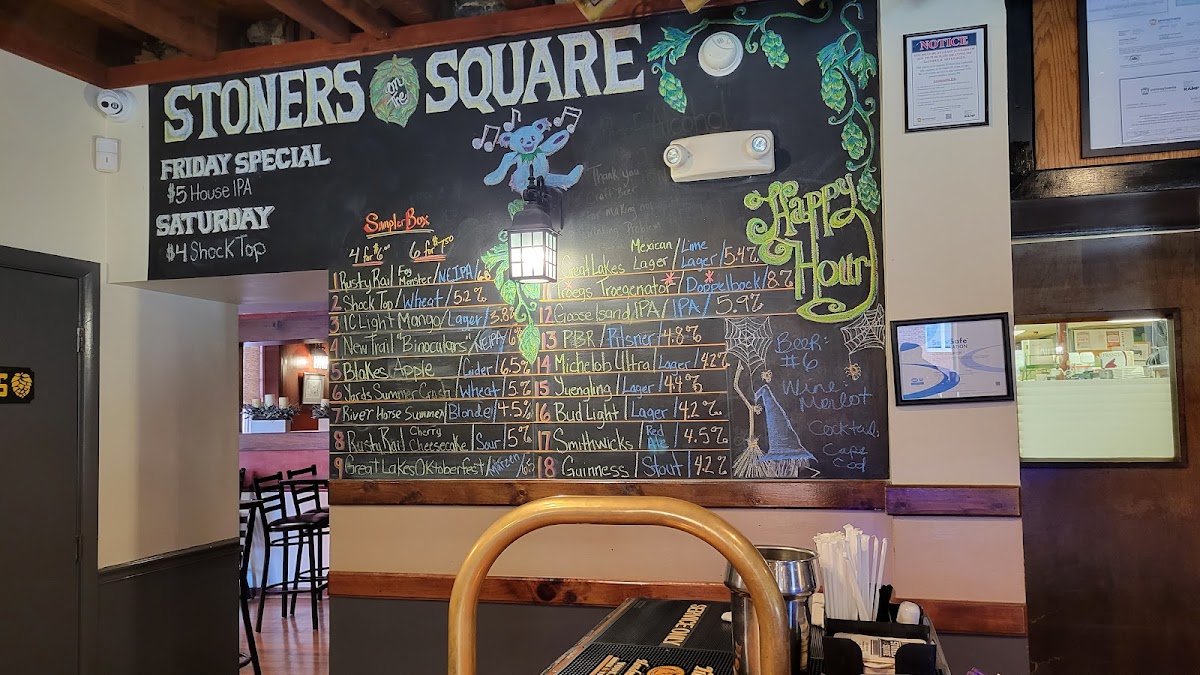 STONERS on the SQUARE
FRIDAY SPECIAL
$5 House IPA
SATURDAY
$4 Shock Top
Sampler Box
4 for $6 6 for $7.50
1 Rusty Rail Fog Monster / NEIPA /
2 Shock Top / Wheat / 5.2%
3 IC Light Mango / Lager / 3.8%
4 New Trail "Binoculars" / NEIPA /
5 Blakes Apple / Cider / 6.5%
6 Yards Summer Crush / Wheat / 5%
7 River Horse Summer / Blonde / 4.5%
8 Rusty Rail Cherry Cheesecake / Sour / 5%
9 Great Lakes Oktoberfest / Marzen /
Great Lakes Mexican Lager / Lime Lager / 5.4%
11 Troegs Troegenator / Doppelbock / 8.%
12 Goose Island IPA / IPA / 5.9%
13 PBR / Pilsner / 4.8%
14 Michelob Ultra / Lager / 4.2%
15 Yuengling / Lager / 4.4%
16 Bud Light / Lager / 4.2%
17 Smithwicks / Red Ale / 4.5%
18 Guinness / Stout / 4.2%
Thank you
Happy
Hour
Beer:
#6
Wine:
Merlot
Cocktail:
Cape
Cod
NOTICE
Safe
SERVICE ONLY